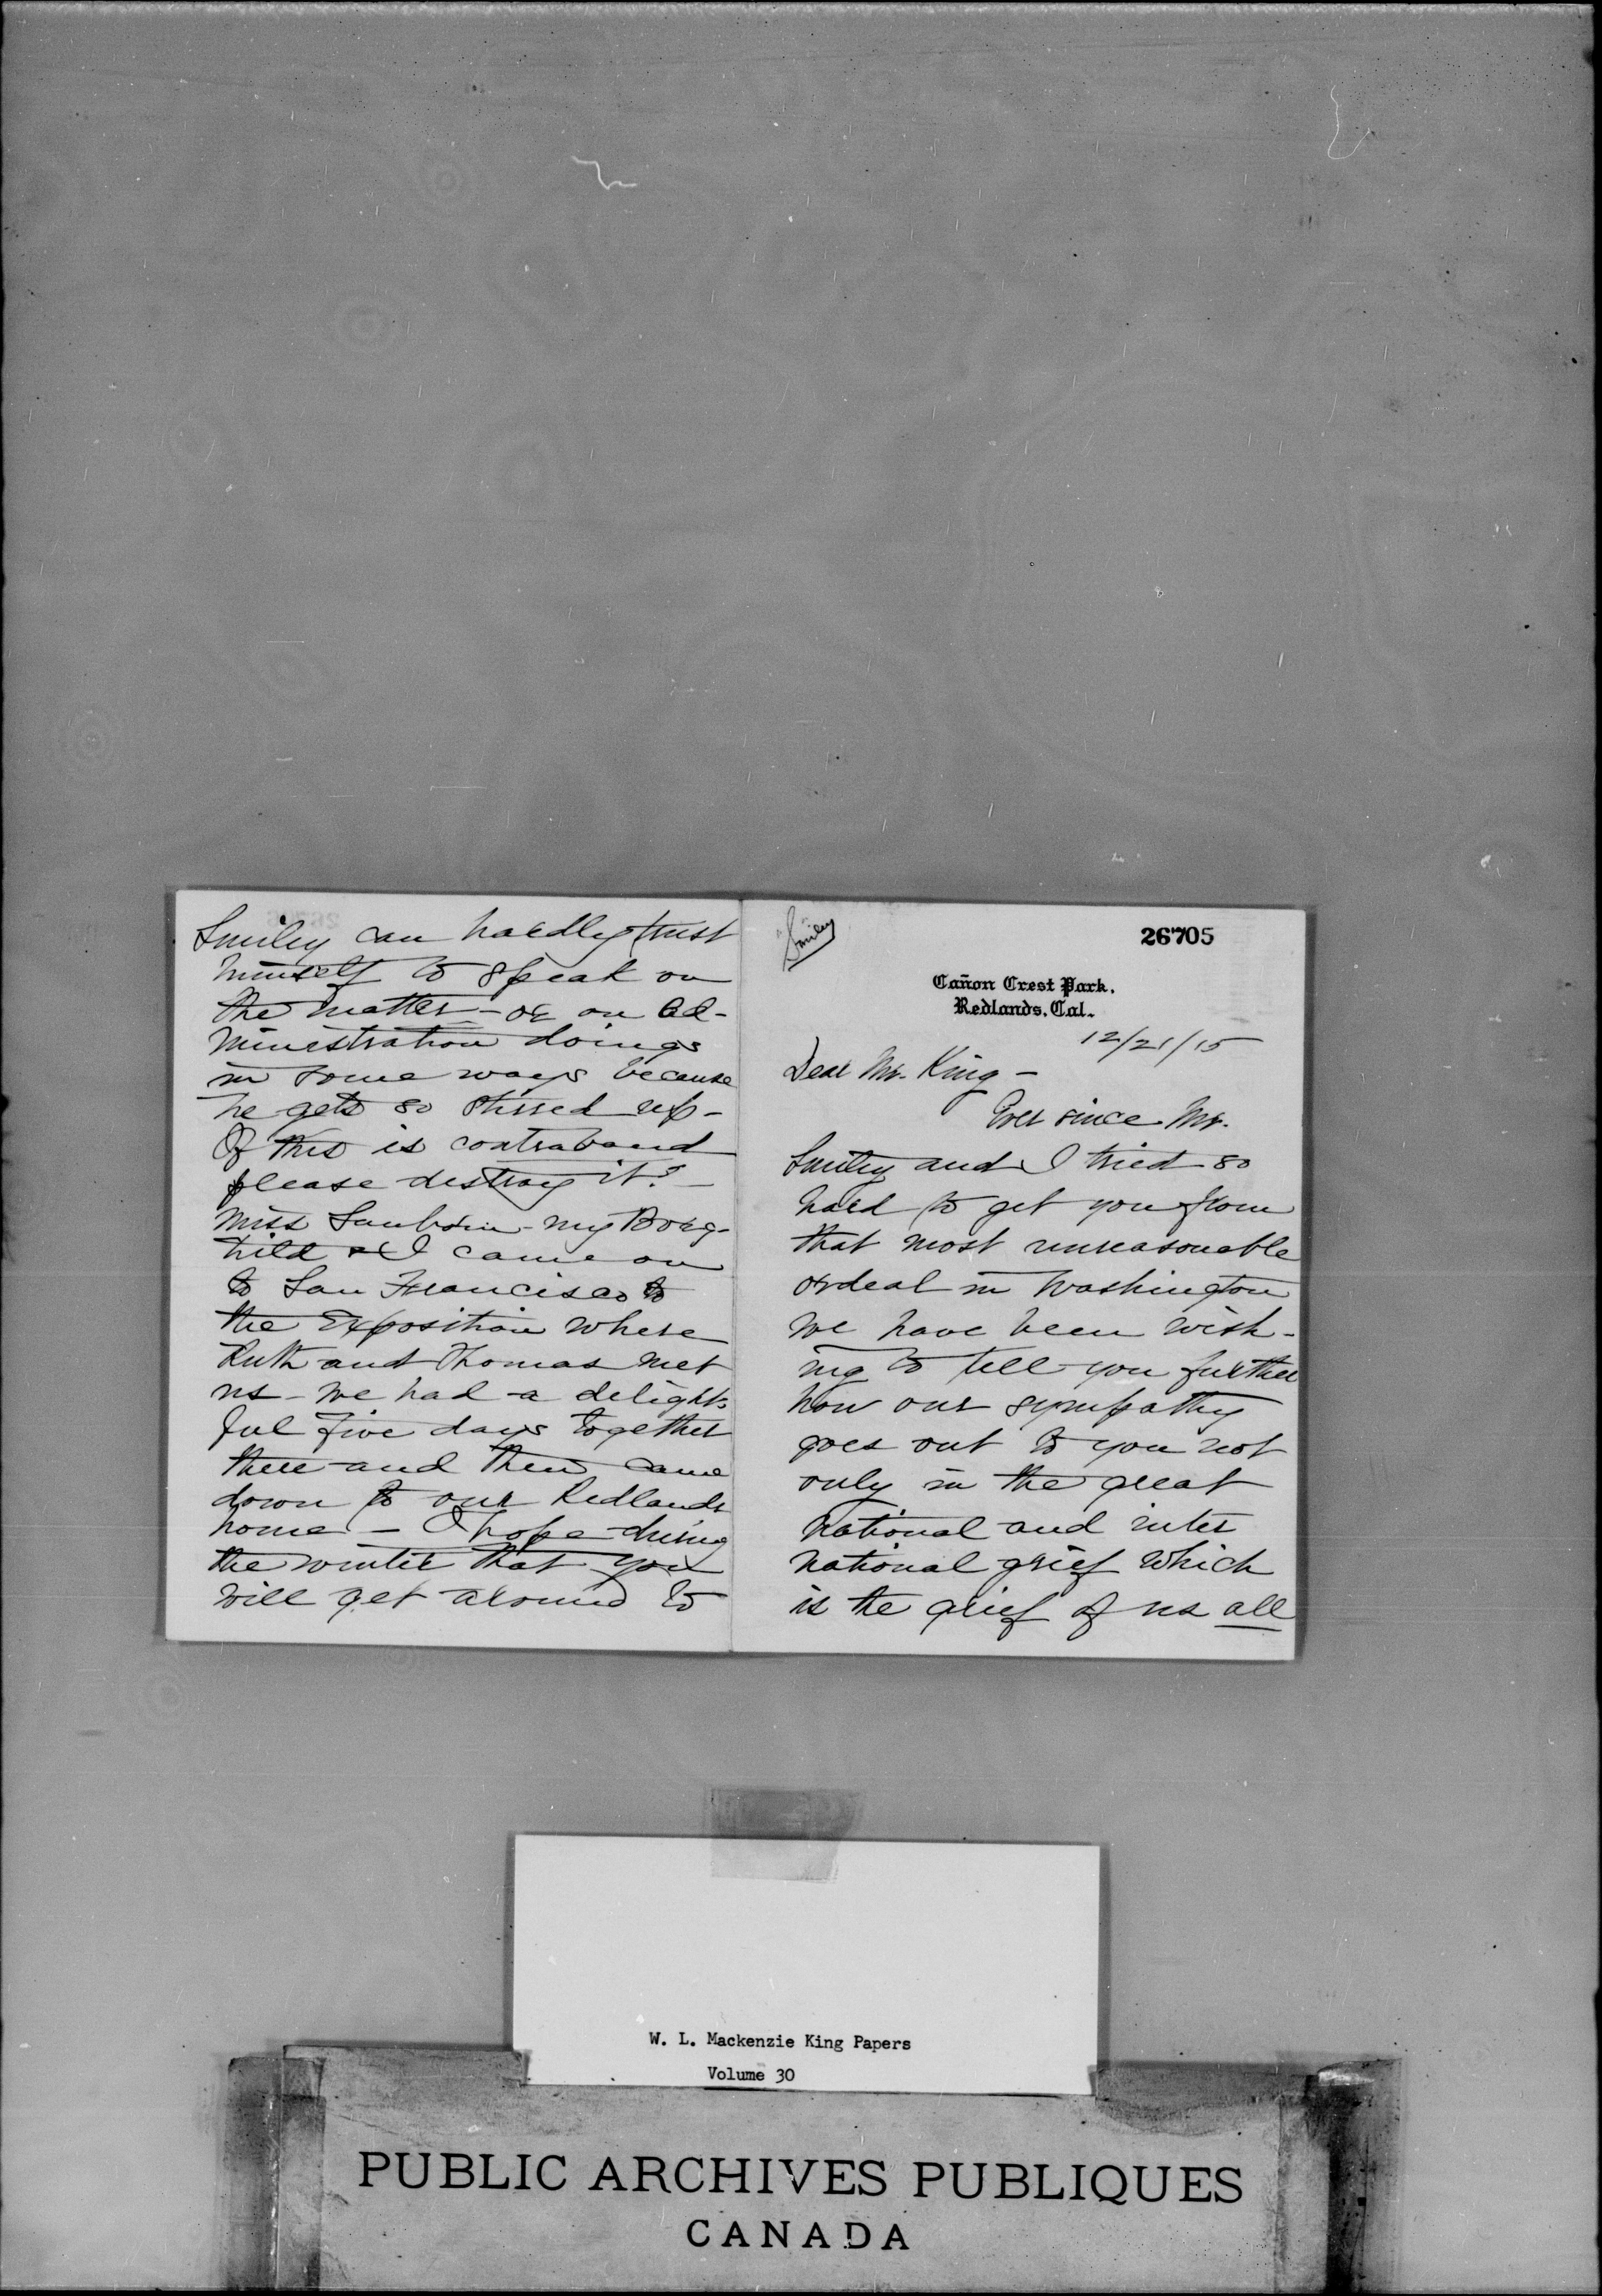 Smiley can hardly trust
himself to speak on
the matter - or on Ad-
ministration doings
in some ways because
he gets so stirred up -
If this is contraband
please destroy it! -
Miss Sanborn - my Borg-
hild & I came on
to San Francisco to
the Exposition where
Ruth and Thomas met
us - we had a delight-
ful five days together
there and then came
down to our Redlands
home - I hope during
the winter that you
will get around to
Smiley
26705
Cañon Crest Park,
Redlands, Cal.
12/21/15
Dear Mr. King -
Ever since Mr.
Smiley and I tried so
hard to get you from
that most unreasonable
ordeal in Washington
we have been wish-
ing to tell you further
how our sympathy
goes out to you not
only in the great
national and inter
national grief which
is the grief of us all
W. L. Mackenzie King Papers
Volume 30
PUBLIC ARCHIVES PUBLIQUES
CANADA